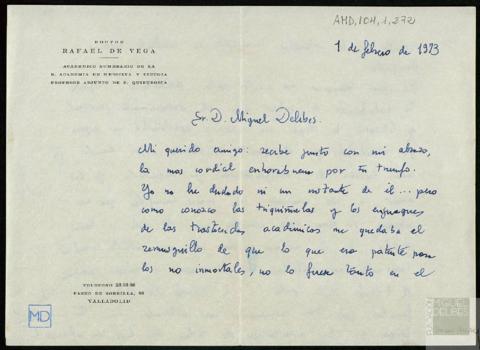 AMD,104,1,272
DOCTOR
RAFAEL DE VEGA
ACADEMICO NUMERARIO DE LA
R. ACADEMIA DE MEDICINA Y CIRUGIA
PROFESOR ADJUNTO DE P. QUIRURGICA
1 de febrero de 1973
Sr. D. Miguel Delibes.
Mi querido amigo: recibe junto con mi abrazo,
la mas cordial enhorabuena por tu triunfo.
Yo no he dudado ni un instante de él... pero
como conozco las triquiñuelas y los enjuagues
de las trastiendas académicas me quedaba el
resquemorcillo de que lo que era patente para
los no inmortales, no lo fuese tanto en el
TELEFONO
PASEO DE ZORRILLA,
VALLADOLID
MD
MIGUEL
DELIBES